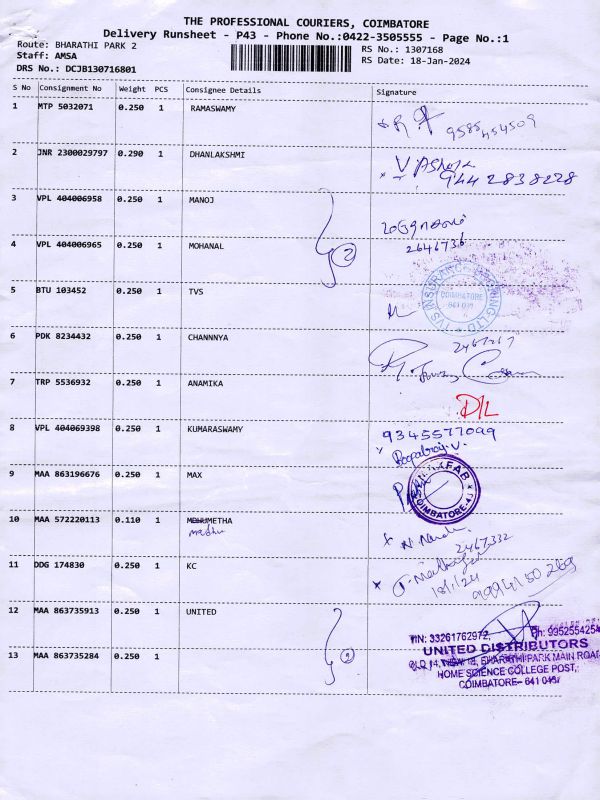 THE PROFESSIONAL COURIERS, COIMBATORE
Delivery Runsheet - P43 - Phone No.:0422-3505555 - Page No.:1
Route: BHARATHI PARK 2
RS No.: 1307168
Staff: AMSA
RS Date: 18-Jan-2024
DRS No.: DCJB130716801
S No Consignment No Weight PCS Consignee Details Signature
1 MTP 5032071 0.250 1 RAMASWAMY
9585454509
2 JNR 2300029797 0.290 1 DHANLAKSHMI
9442838228
3 VPL 404006958 0.250 1 MANOJ
4 VPL 404006965 0.250 1 MOHANAL
2 2646736
5 BTU 103452 0.250 1 TVS
COIMBATORE
6 PDK 8234432 0.250 1 CHANNNYA
7 TRP 5536932 0.250 1 ANAMIKA
D/L
8 VPL 404069398 0.250 1 KUMARASWAMY
9345577099
9 MAA 863196676 0.250 1 MAX
COIMBATORE
10 MAA 572220113 0.110 1 METHA
madhu
2467332
11 DDG 174830 0.250 1 KC
18/1/24 9994150269
12 MAA 863735913 0.250 1 UNITED
TIN: 33261762972, Ph: 9952554254
UNITED DISTRIBUTORS
BHARATHI PARK MAIN ROAD
13 MAA 863735284 0.250 1
2
HOME SCIENCE COLLEGE POST,
COIMBATORE- 641 043